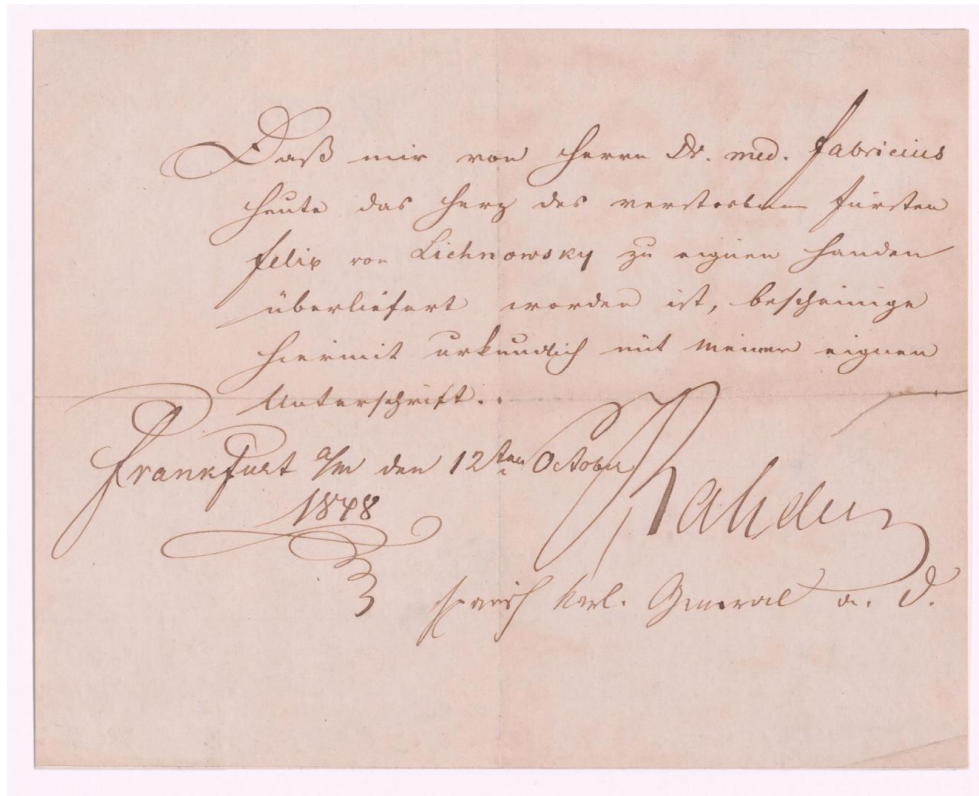 Daß mir von Herrn Dr. med. Fabricius
heute das Herz des verstorbenen Fürsten
Felix von Lichnowsky zu eignen Handen
überliefert worden ist, bescheinige
hiermit urkundlich mit meiner eignen
Unterschrift.
Frankfurt a/m den 12ten October
1848
Rahden
spanisch Karl. General a. D.